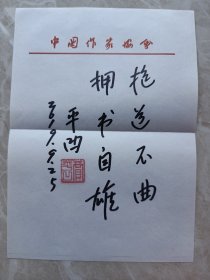 中国作家协会
抱道不曲
拥书自雄
平凹
2019.9.25